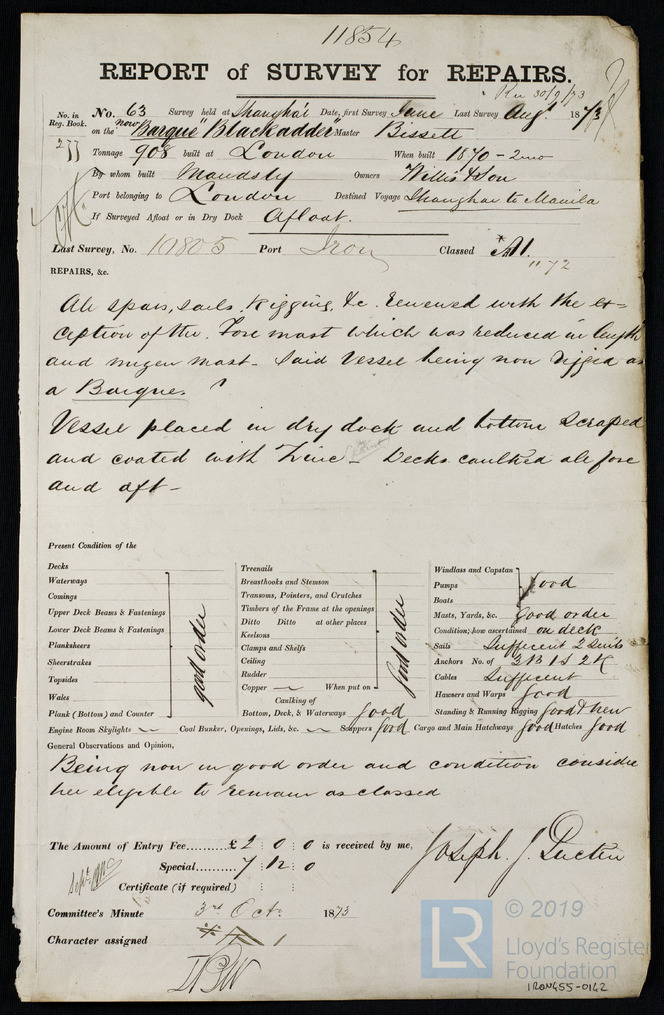 11854
REPORT of SURVEY for REPAIRS.
Rec 30/9/73
No. in Reg. Book. No. 63 Survey held at Shanghai Date, first Survey June Last Survey Augt. 1873
on the now Barque "Blackadder" Master Bissett
277
Tonnage 908 built at London When built 1870 - 2mo
By whom built Maudsly Owners Willis & Son
Port belonging to London Destined Voyage Shanghai to Manila
If Surveyed Afloat or in Dry Dock Afloat.
Last Survey, No. 10805 Port Iron Classed A1.
11.72
REPAIRS, &c.
All spars, sails, Rigging, &c. renewed with the ex=
ception of the. Fore mast which was reduced in length
and mizen mast. Said Vessel being now rigged as
a Barque.
Vessel placed in dry dock and bottom scraped
and coated with Zinc - Decks caulked all fore
and aft -
Present Condition of the
Decks
Waterways
Comings
Upper Deck Beams & Fastenings
Lower Deck Beams & Fastenings
Planksheers
Sheerstrakes
Topsides
Wales
Plank (Bottom) and Counter
good order
Treenails
Breasthooks and Stemson
Transoms, Pointers, and Crutches
Timbers of the Frame at the openings
Ditto Ditto at other places
Keelsons
Clamps and Shelfs
Ceiling
Rudder
Copper — When put on
good order
Caulking of
Bottom, Deck, & Waterways good
Windlass and Capstan
Pumps
Boats
good
Masts, Yards, &c. good order
Condition; how ascertained on deck
Sails Sufficent 2 suits
Anchors No. of 3 B 1 S 2 K
Cables Sufficent
Hawsers and Warps good
Standing & Running Rigging good & new
Engine Room Skylights — Coal Bunker, Openings, Lids, &c. — Scuppers good Cargo and Main Hatchways good Hatches good
General Observations and Opinion,
Being now in good order and condition consider
her eligible to remain as classed
The Amount of Entry Fee......£ 2 : 0 : 0 is received by me,
Special......... 7 : 12 : 0
Certificate (if required) : :
Joseph. J.
Committee's Minute 3rd Oct. 1873
Character assigned
© 2019
LR
Lloyd's Register
Foundation
IRON455-0142